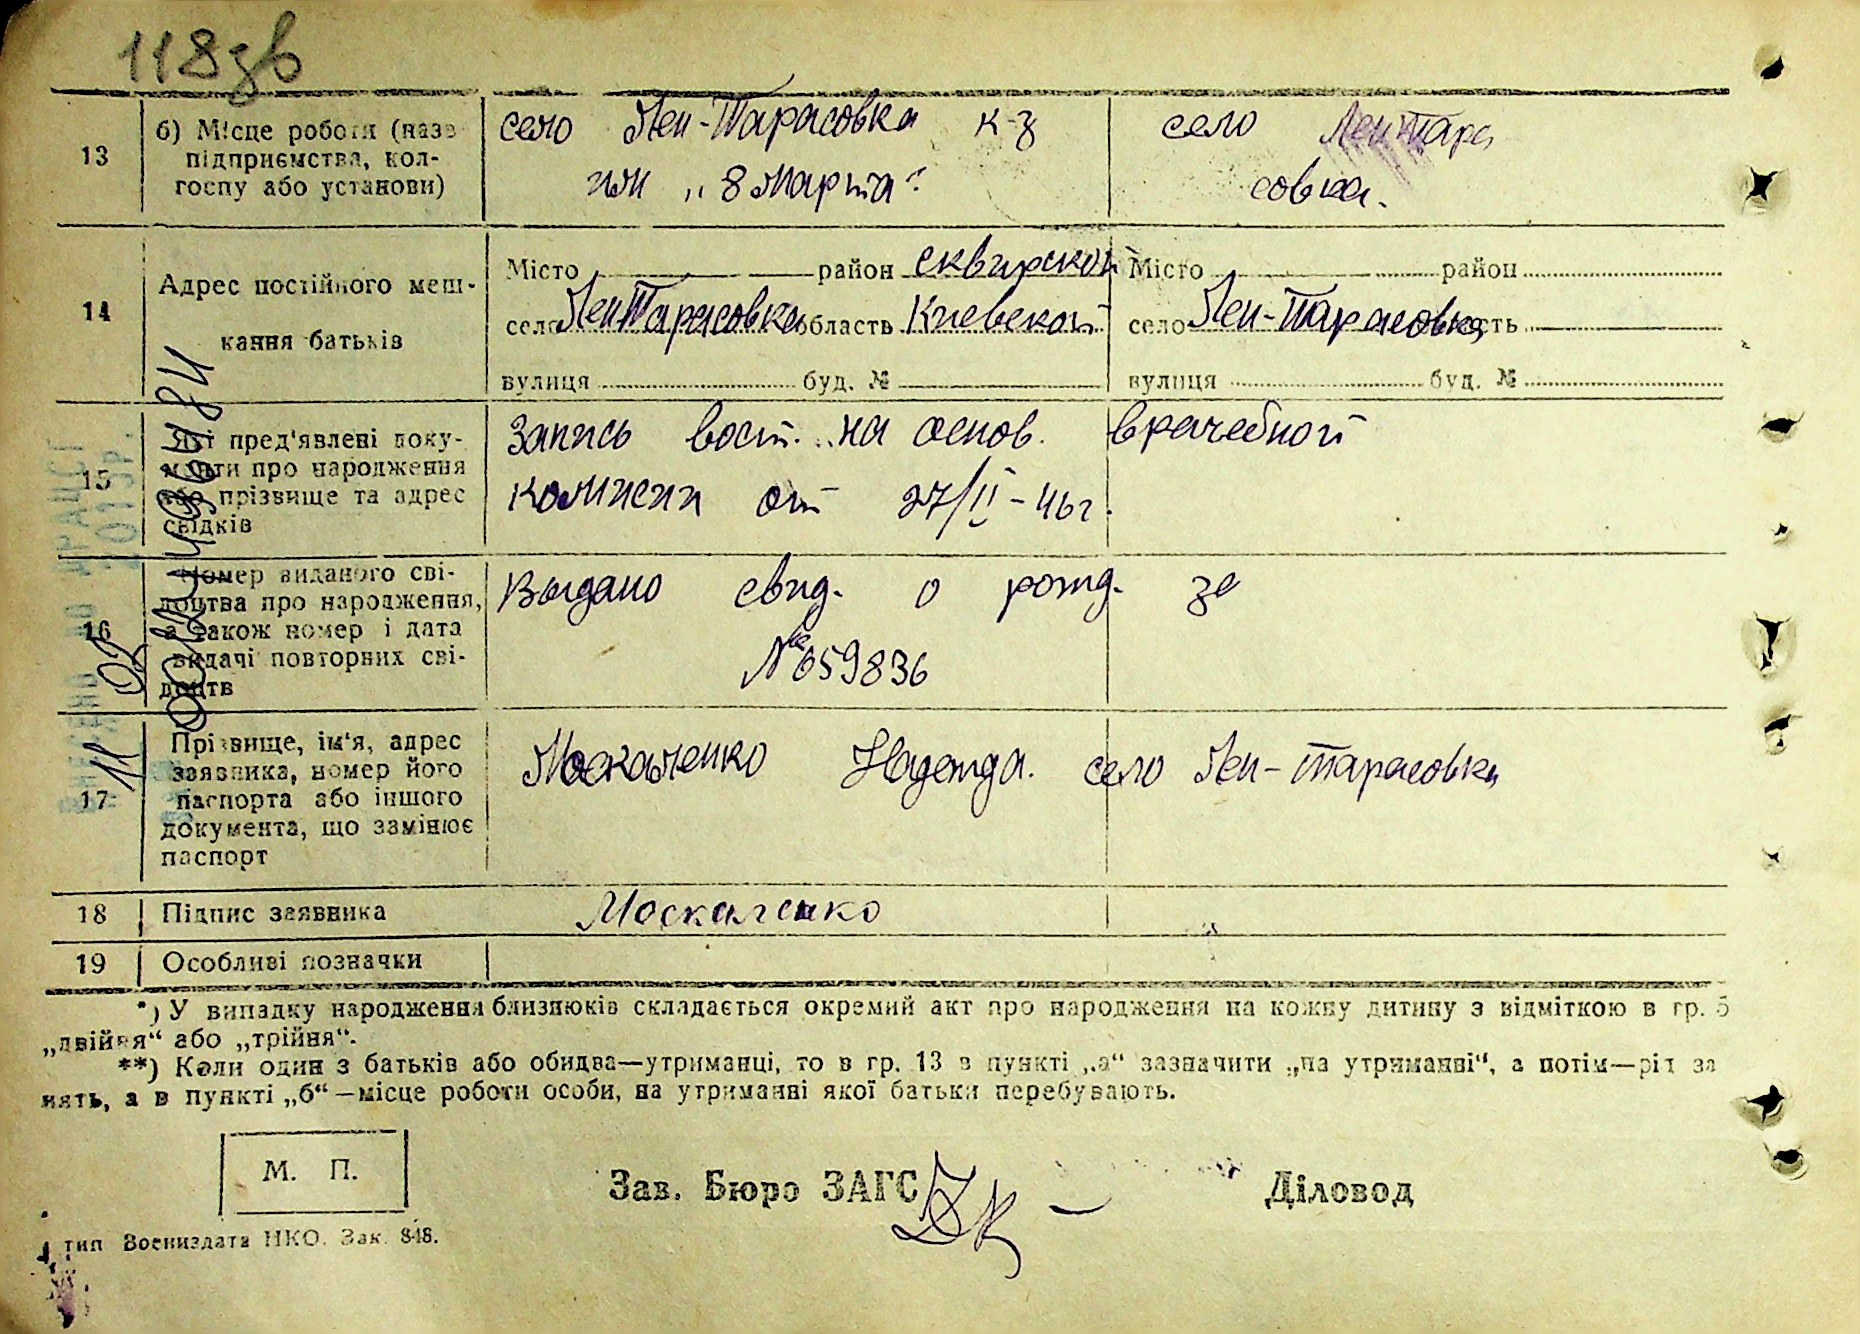 118зв
13
б) Місце роботи (назв
підприємства, кол-
госпу або установи)
село Лен-Тарасовка к-з
им „8 марта"
село Лен Тара
совка.
14
Адрес постійного меш-
кання батьків
Місто район сквирской
село Лен Тарасовка область Киевской
вулиця буд. №
Місто район
село Лен-Тарасовка
вулиця буд. №
15
Які пред'явлені доку-
менти про народження
або прізвище та адрес
свідків
Запись вост. на основ. врачебной
комисии от 27/II-46г.
16
Номер виданого сві-
доцтва про народження,
а також номер і дата
видачі повторних сві-
доцтв
Выдано свид. о рожд. за
№ 659836
17
Прізвище, ім'я, адрес
заявника, номер його
паспорта або іншого
документа, що замінює
паспорт
Москаленко Надежда. село Лен-Тарасовка
18
Підпис заявника
Москаленко
19
Особливі позначки
*) У випадку народження близнюків складається окремий акт про народження на кожну дитину з відміткою в гр. 5
„двійня" або „трійня".
**) Коли один з батьків або обидва—утриманці, то в гр. 13 в пункті „а" зазначити „на утриманні", а потім—рід за
нять, а в пункті „б"—місце роботи особи, на утриманні якої батьки перебувають.
М. П.
Зав. Бюро ЗАГС
Діловод
тип Воениздата НКО. Зак. 848.